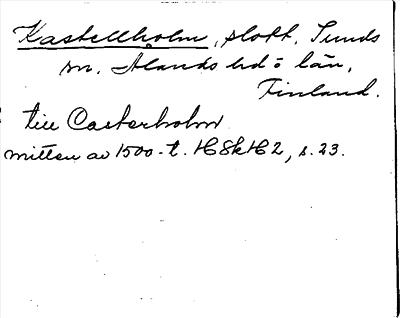 Kastellholm, slott, Sunds
sn, Ålands hd o län,
Finland.
till Casterholm
mitten av 1500-t. HSkH 2, s. 23.